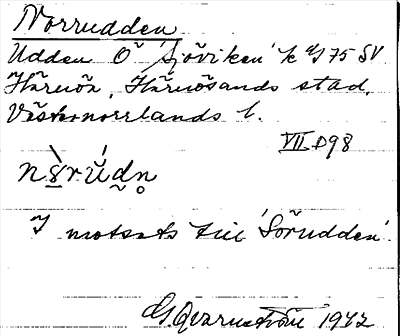 Norrudden
Udden Ö 'Sjöviken' k 4/75 SV
Härnön, Härnösands stad,
Västernorrlands l.
VII D98
I motsats till 'Sörudden'.
G. Qvarnström 1942